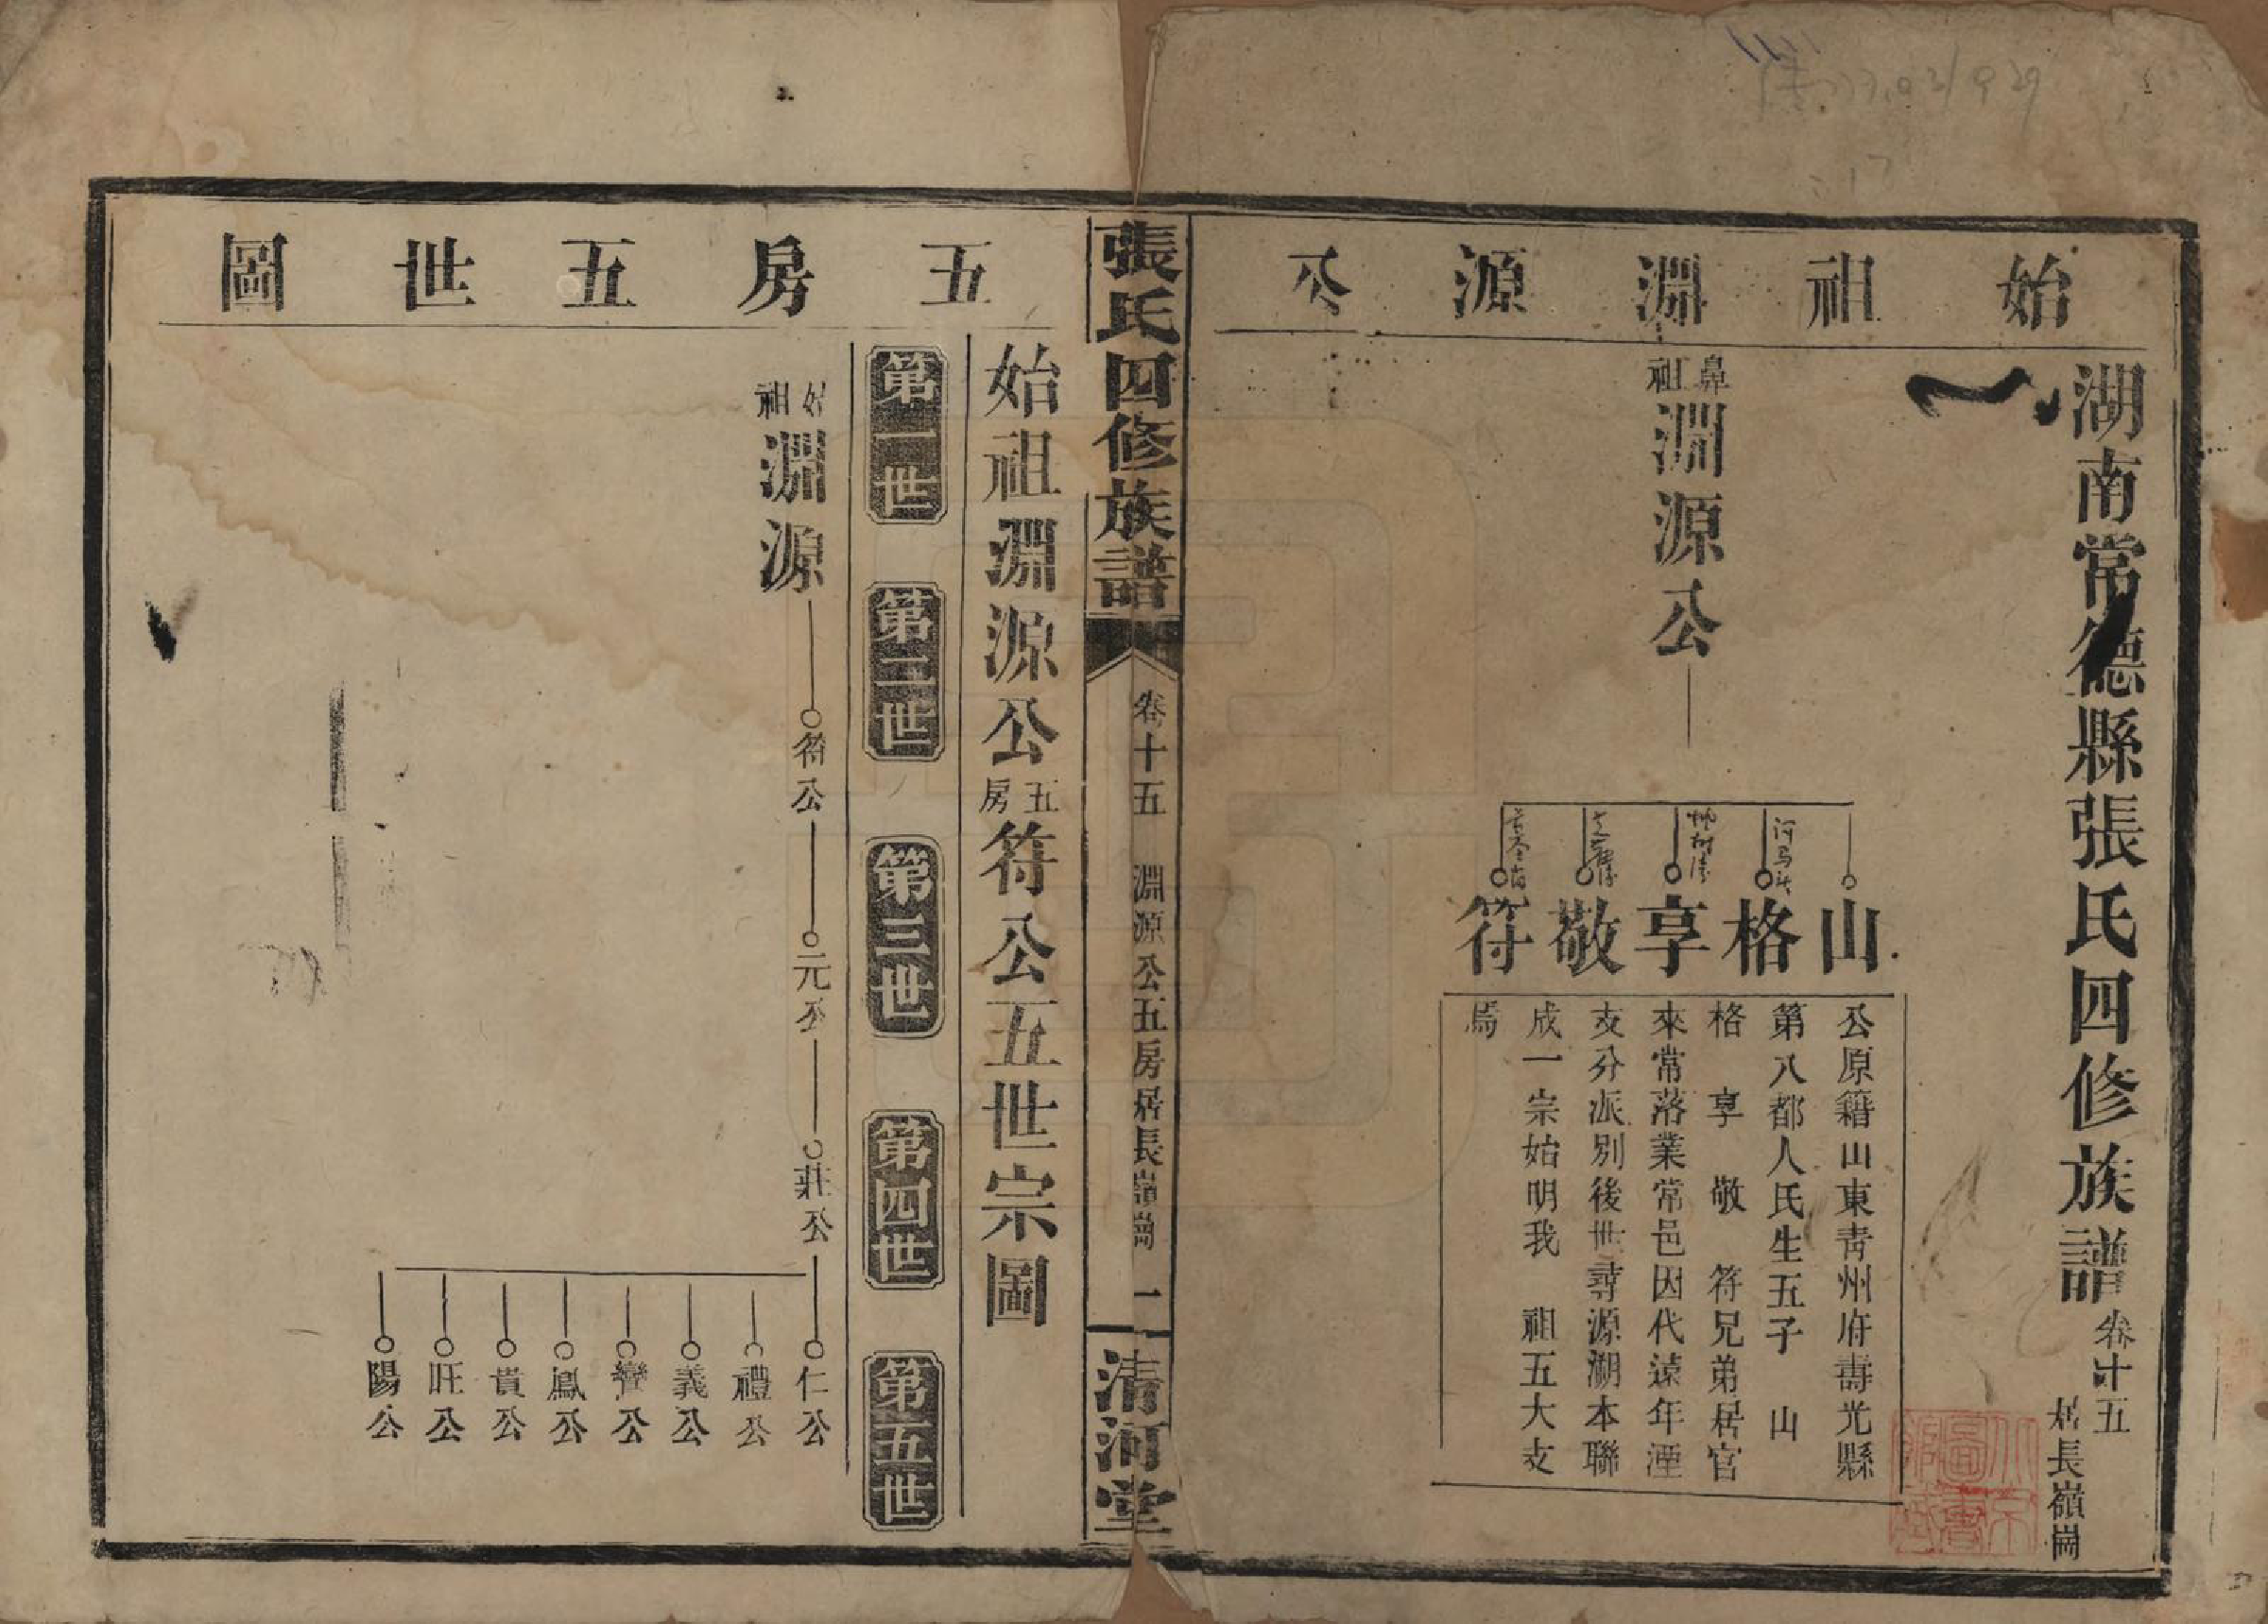 始祖淵源公
湖南常德縣張氏四修族譜卷十五 居長嶺崗
鼻祖淵源公
山
格
享
敬
符
公原籍山東青州府壽光縣
第八都人氏生五子 山
格 享 敬 符兄弟居官
來常落業常邑因代遠年湮
支分派別後世尋源溯本聯
成一宗始明我 祖五大支
焉
張氏四修族譜
卷十五 淵源公五房居長嶺崗 一
清河堂
五房五世圖
始祖淵源公五房符公五世宗圖
第一世
第二世
第三世
第四世
第五世
始祖淵源
符公
元公
莊公
仁公
禮公
義公
鸞公
鳳公
貴公
旺公
陽公